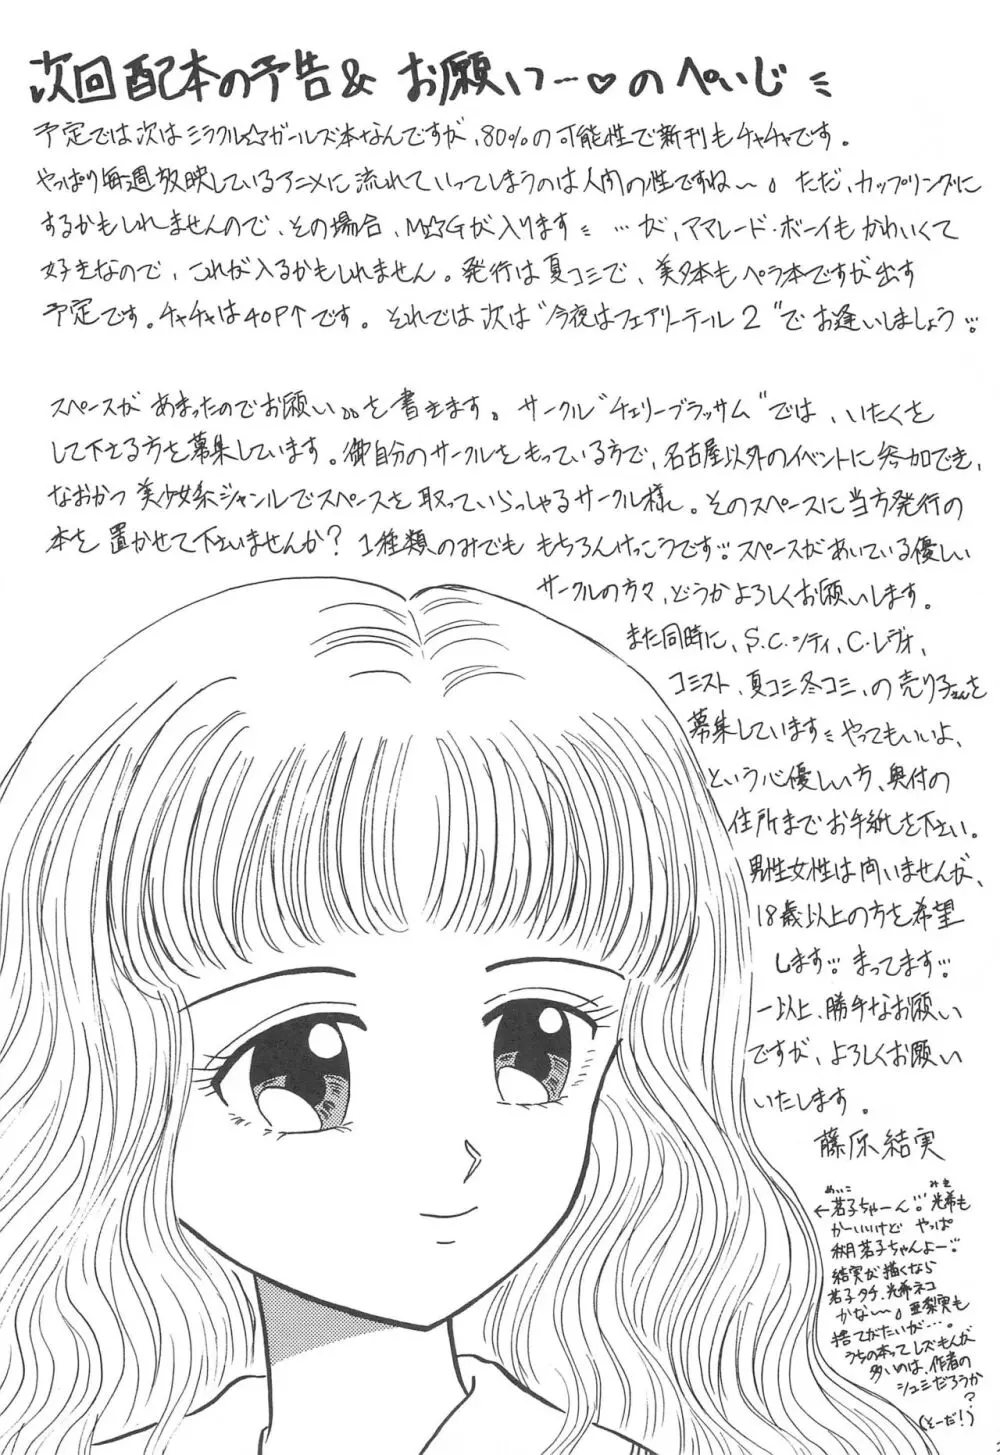 次回配本の予告& お願いっ…♡のぺいじ
予定では次はミラクル☆ガールズ本なんですが、80%の可能性で新刊もチャチャです。
やっぱり毎週放映しているアニメに流れていってしまうのは人間の性ですね〜。ただ、カップリングに
するかもしれませんので、その場合、M☆Gが入ります …が、ママレード・ボーイもかわいくて
好きなので、これが入るかもしれません。発行は夏コミで、美夕本もペラ本ですが出す
予定です。チャチャは40P↑です。それでは次は"今夜はフェアリーテール2"でお逢いしましょう
スペースがあまったのでお願い。。を書きます。サークル"チェリーブラッサム"では、いたくを
して下さる方を募集しています。御自分のサークルをもっている方で、名古屋以外のイベントに参加でき、
なおかつ美少女系ジャンルでスペースを取っていらっしゃるサークル様。そのスペースに当方発行の
本を置かせて下さいませんか?1種類のみでももちろんけっこうです スペースがあいている優しい
サークルの方々、どうかよろしくお願いします。
また同時に、S.C.シティ、C・レヴォ、
コミスト、夏コミ冬コミ、の売り子さんを
募集しています やってもいいよ、
という心優しい方、奥付の
住所までお手紙を下さい。
男性女性は問いませんが、
18歳以上の方を希望
します まってます
一以上、勝手なお願い
ですが、よろしくお願い
いたします。
藤原結実
←茗子ちゃーん 光希も
めいこ みき
かーいいけど やっぱ
秋月茗子ちゃんよー
結実が描くなら
茗子タチ、光希ネコ
かな〜。亜梨実も
捨てがたいが…。
うちの本ってレズもんが
多いのは、作者の
シュミだろうか
?
(そーだ!)